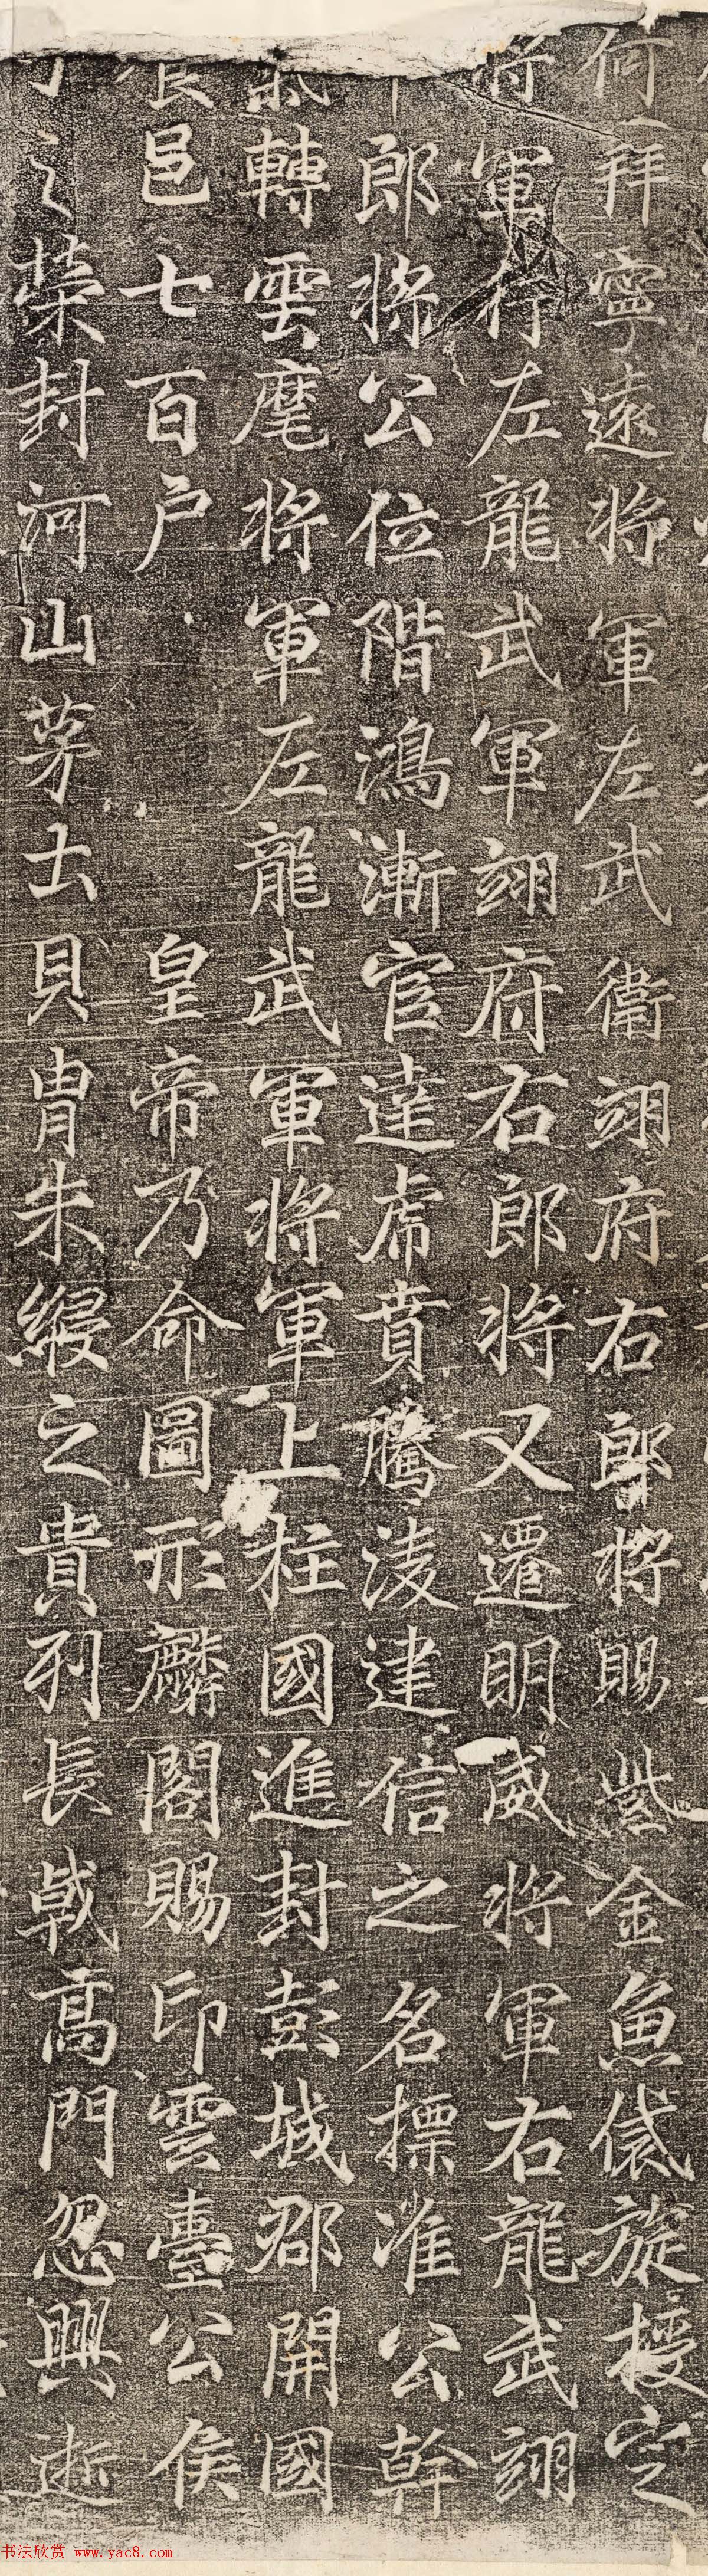 何拜寧遠將軍左武衛翊府右郎將賜紫金魚袋旋授定
將軍行左龍武軍翊府右郎將又遷明威將軍右龍武翊
中郎將公位階鴻漸官達虎賁騰凌建信之名摽灌公幹
氣轉雲麾將軍左龍武軍將軍上柱國進封彭城郡開國
食邑七百戶 皇帝乃命圖形麟閣賜印雲臺公侯
之榮封河山茅土貝胄朱綬之貴列長戟高門忽興逝
书法欣赏 www.yac8.com